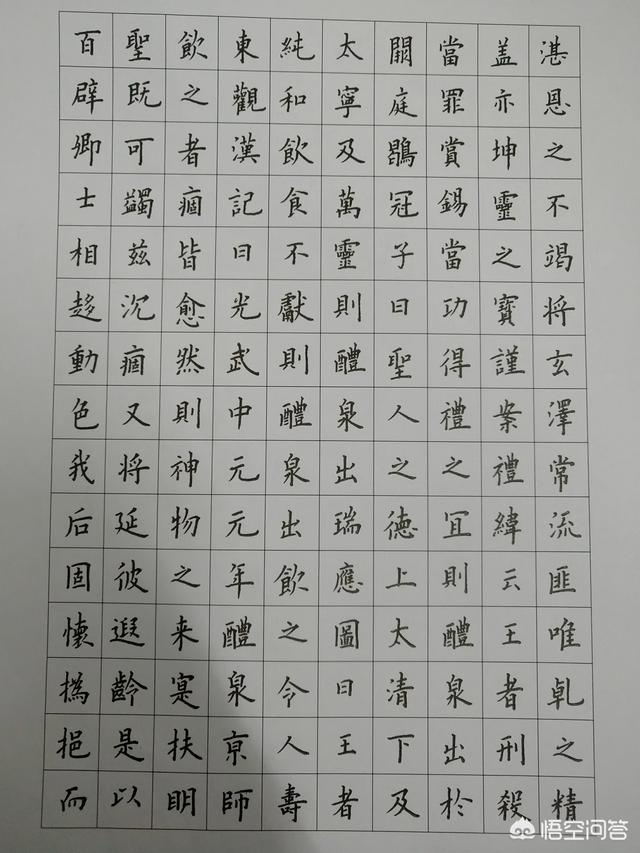 湛恩之不竭将玄澤常流匪唯乹之精
盖亦坤靈之寶謹案禮緯云王者刑殺
當罪賞錫當功得禮之宜則醴泉出於
闕庭鶡冠子曰聖人之德上太清下及
太寧及萬靈則醴泉出瑞應圖曰王者
純和飲食不獻則醴泉出飲之令人壽
東觀漢記曰光武中元元年醴泉亰師
飲之者痼皆愈然則神物之来寔扶明
聖既可蠲兹沉痼又将延彼遐齡是以
百辟卿士相趍動色我后固懷撝挹而
悟空问答